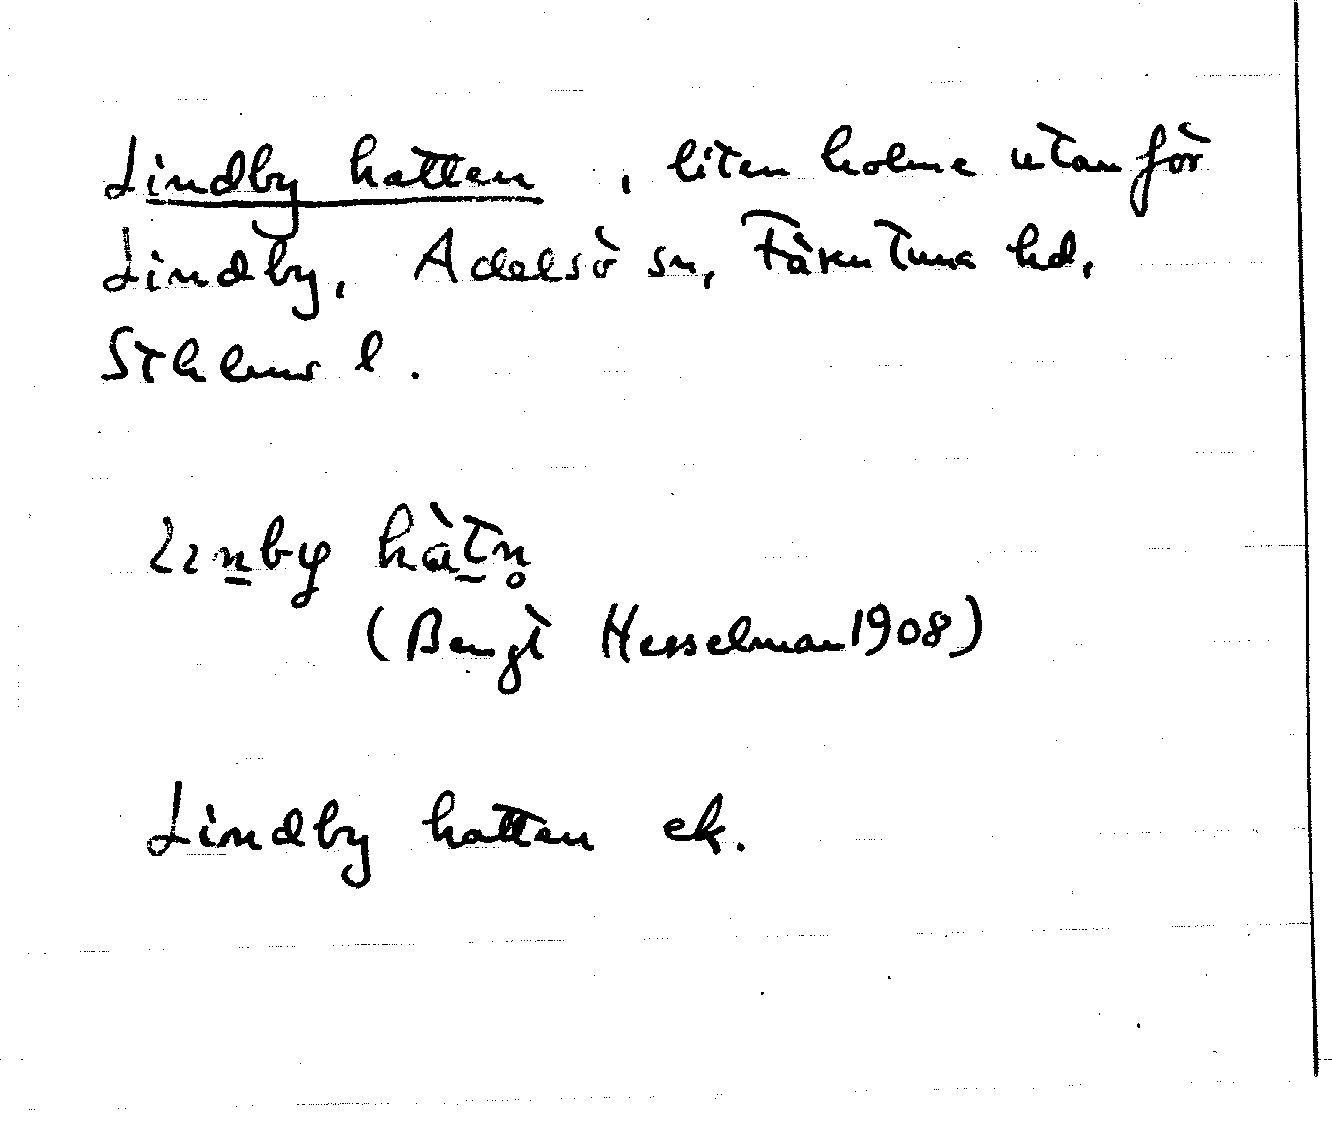 Lindby hatten, liten holme utanför
Lindby, Adelsö sn, Färentuna hd,
Sthlms l.
lɪn̲by hàt̲n̥
(Bengt Hesselman 1908)
Lindby hatten ek.